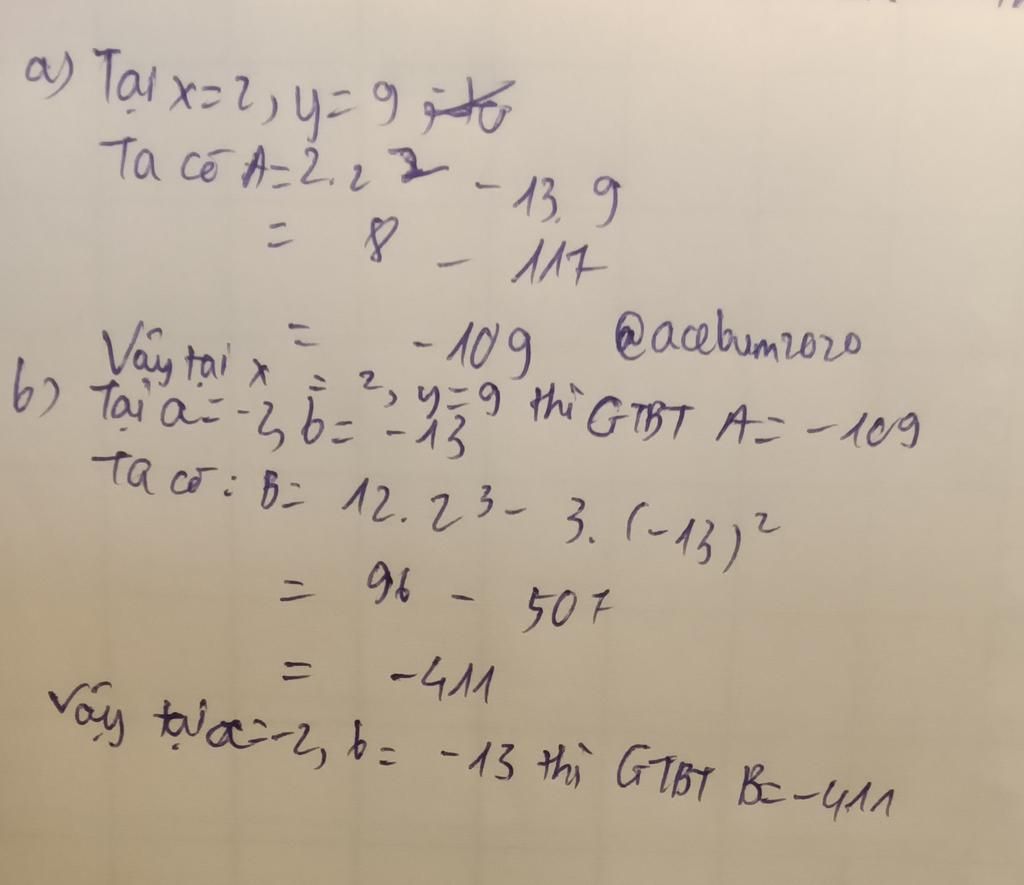 a) Tại x=2, y=9
Ta có A=2.2² - 13.9
= 8 - 117
= -109 @acebum2020
Vậy tại x = 2, y=9 thì GTBT A= -109
b) Tại a= -2, b= -13
Ta có: B= 12.2³ - 3.(-13)²
= 96 - 507
= -411
Vậy tại a=-2, b= -13 thì GTBT B=-411